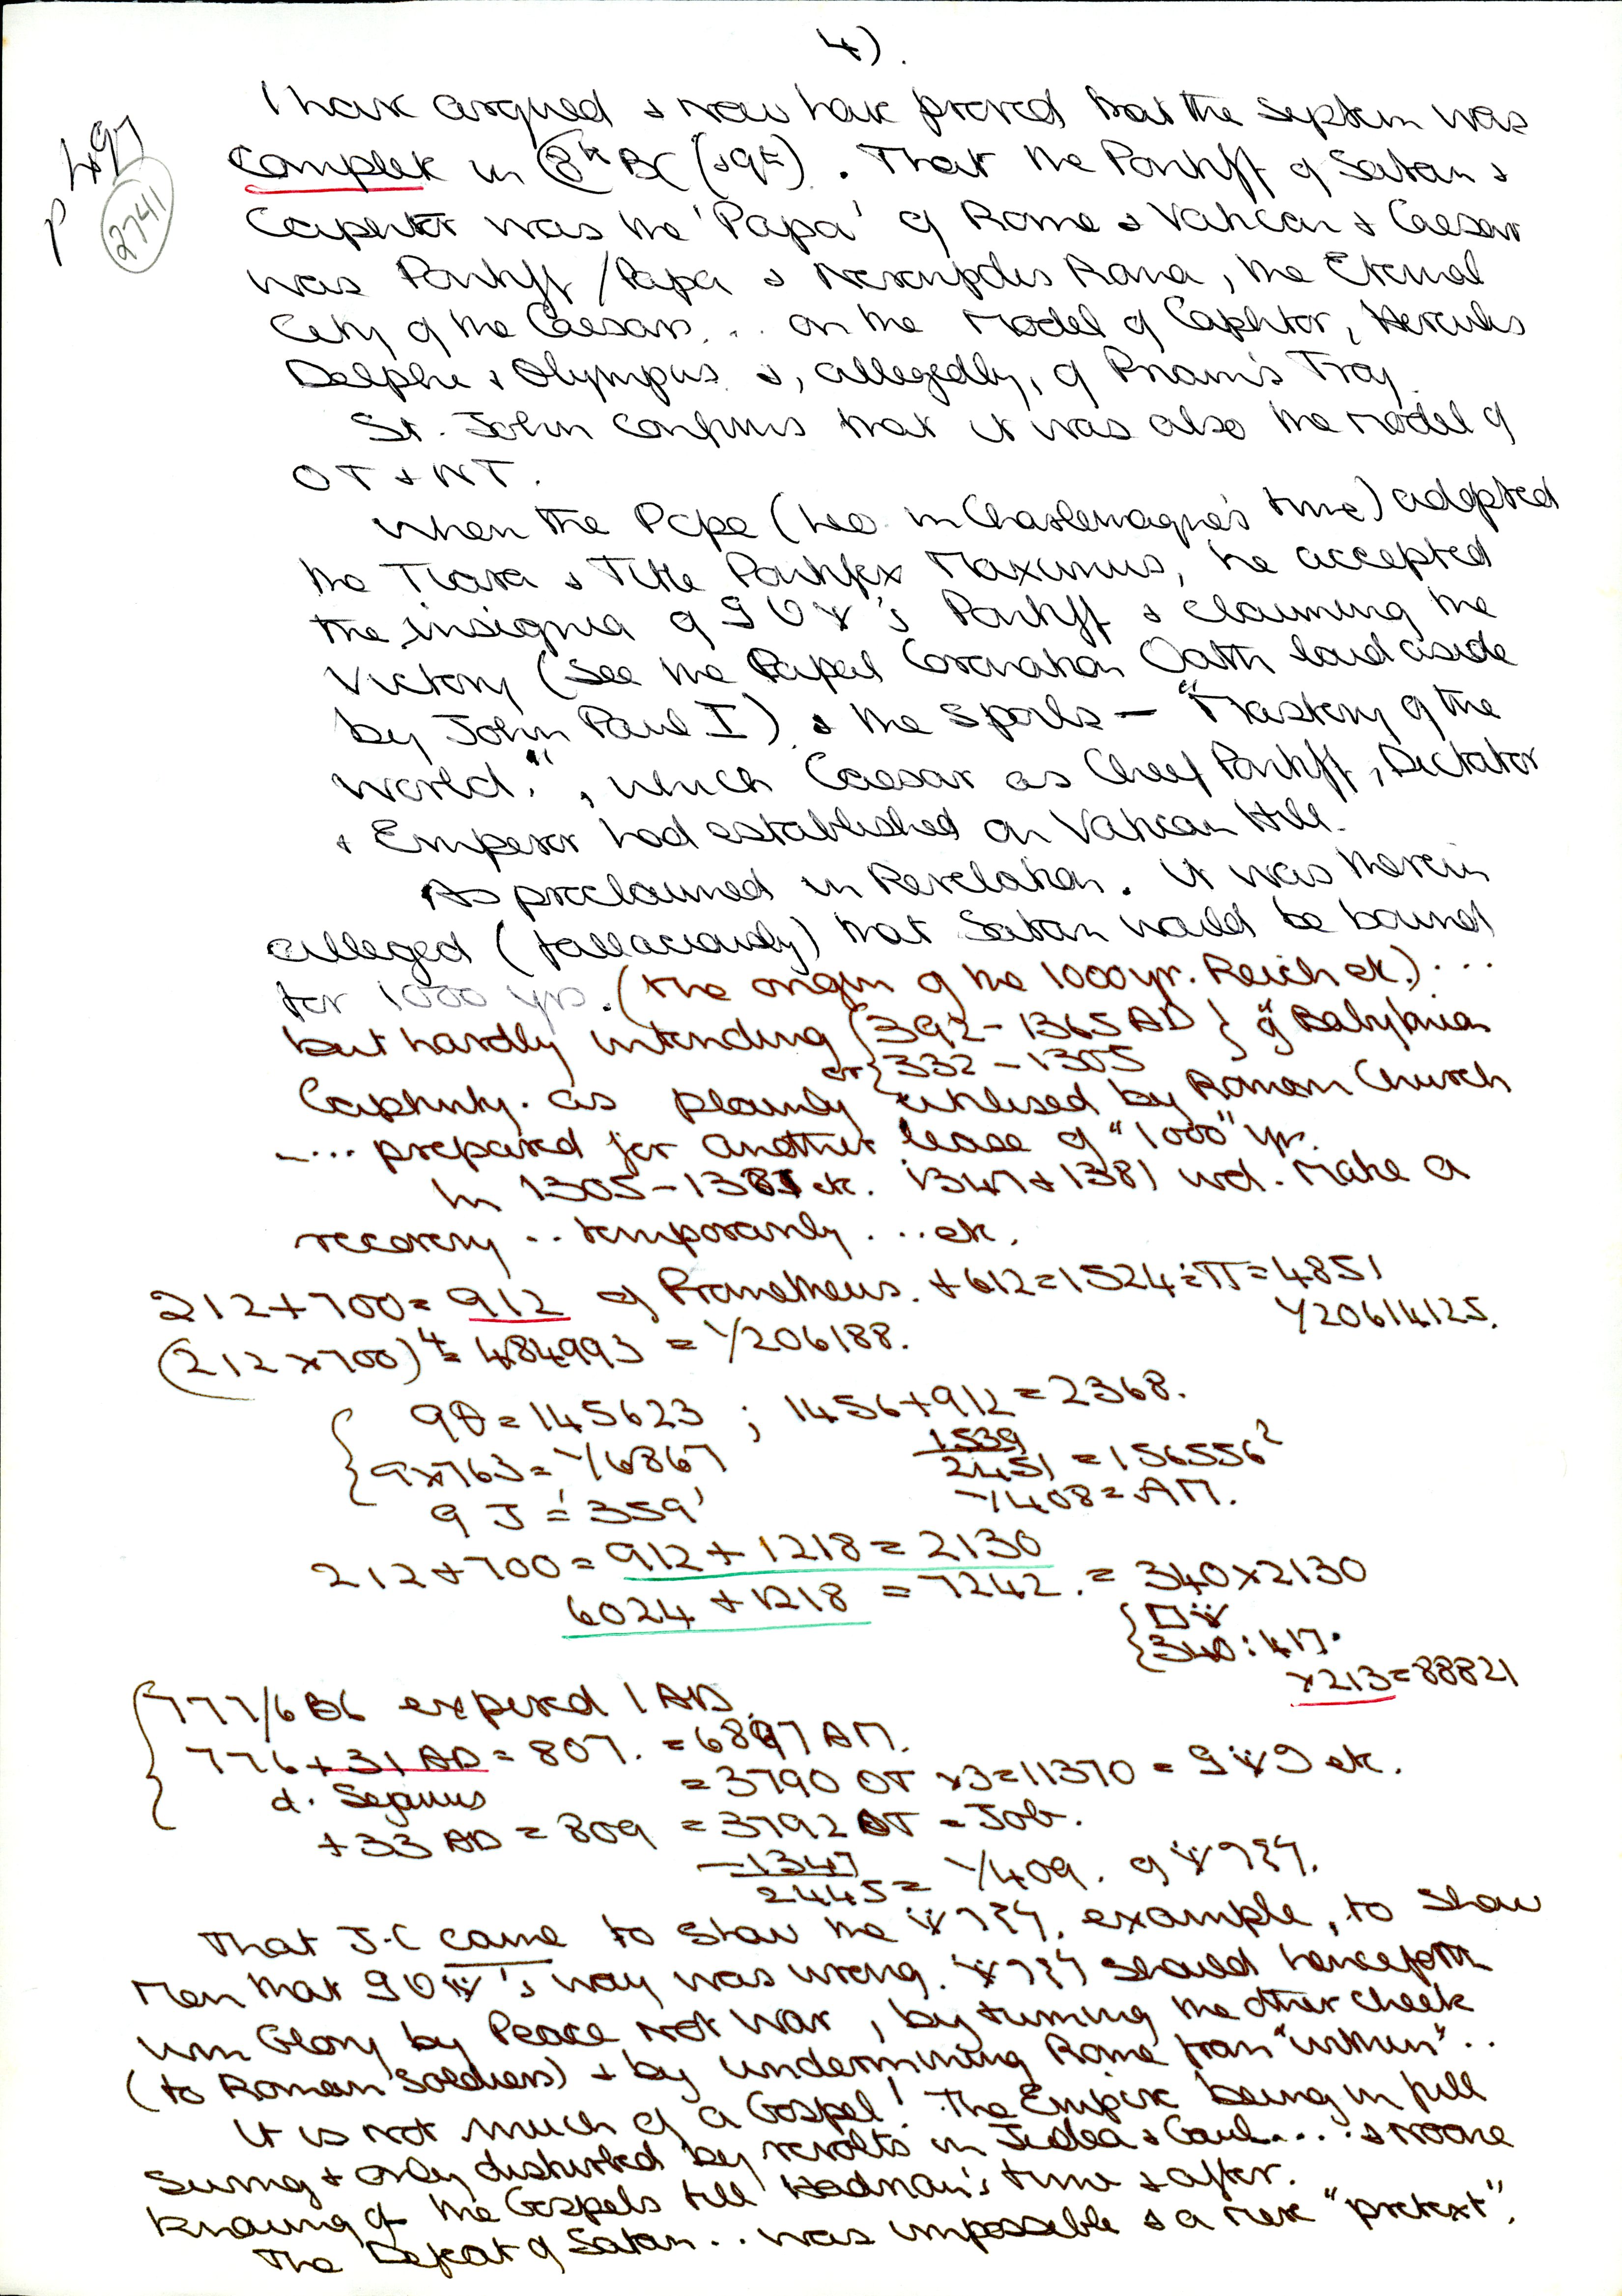 4).
p 497
2741
I have argued & now have proved that the System was
Complete in 8th BC (& 9th). That the Pontiff of Satan &
Caphtor was the 'Papa' of Rome & Vatican & Caesar
was Pontiff / Papa & Roma, the Eternal
City of the Caesars... on the Model of Caphtor, Hercules
Delphi & Olympus &, allegedly, of Priam's Troy.
St. John confirms that it was also the model of
OT & NT.
When the Pope (Leo in Charlemagne's time) adopted
the Tiara & Title Pontifex Maximus, he accepted
the insignia of Pontiff & claiming the
Victory (See the Papal Coronation Oath laid aside
by John Paul I) & the spoils — "Mastery of the
World.", which Caesar as Chief Pontiff, Dictator
& Emperor had established on Vatican Hill.
As proclaimed in Revelation. It was therein
alleged (fallaciously) that Satan would be bound
for 1000 yrs. (the origin of the 1000 yr. Reich etc.)...
but hardly intending {392-1365 AD} "of Babylonian
or {332-1305
Captivity. as plainly utilised by Roman Church
.... prepared for another lease of "1000" yr.
In 1305-1381 etc. 1347 & 1381 wd. make a
recovery .. temporarily ... etc.
212+700=912 of Prometheus. +612=1524÷π=4851
1/20614125.
(212x700)4=484993 = 1/206188.
{ 9θ=145623 ; 1456+912=2368.
9x763=1/6867
1539
2451 =156556²
9 J = '359'
1/408=AM.
212+700=912+1218=2130
6024+1218 = 7242. = 340x2130
340:417.
x213=88821
{777/6 BC expired 1 AD.
776+31 AD=807. =6897 AM.
d. Sejanus
=3790 OT x3=11370 = etc.
+33 AD=809 =3792 OT = Job.
-1347
2445= 1/409. of
That J.C came to show the example, to show
Men that way was wrong. should henceforth
win Glory by Peace not War, by turning the other cheek
(to Roman Soldiers) & by undermining Rome from "within"..
It is not much of a Gospel! The Empire being in full
Swing & only disturbed by revolts in Judea & Gaul.... & noone
knowing of the Gospels till Hadrian's time & after.
The Defeat of Satan .. was impossible & a mere "pretext".